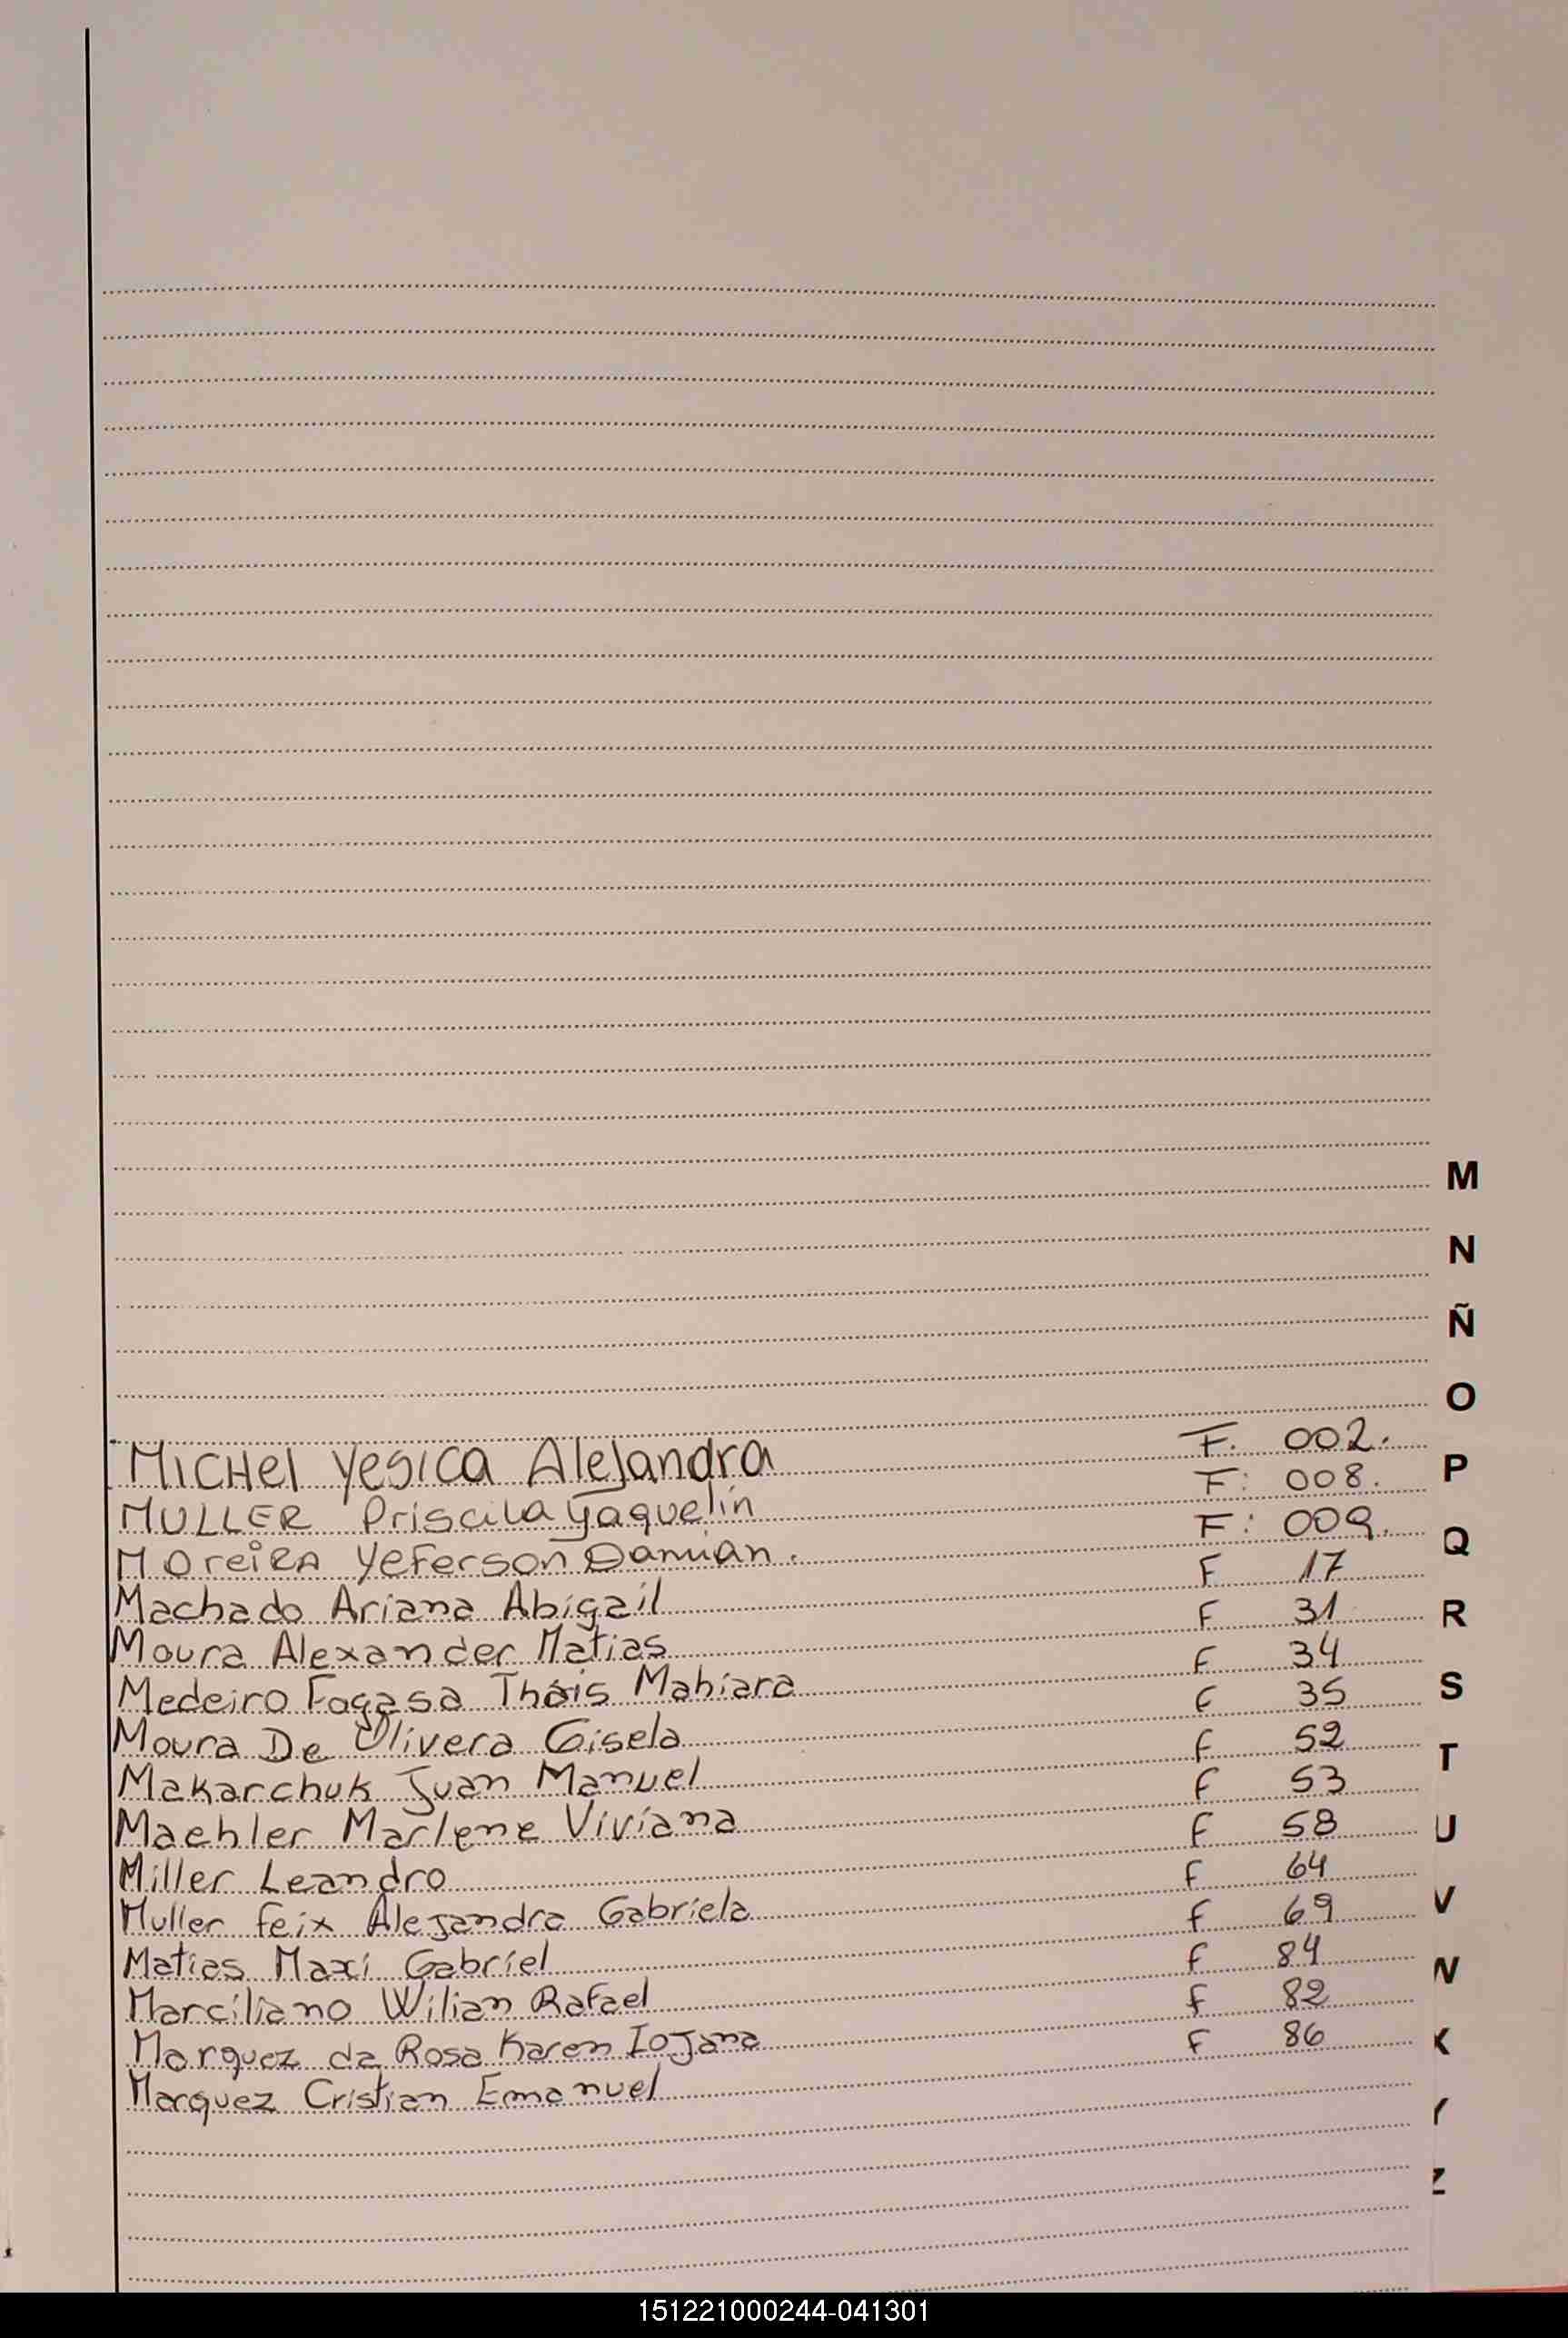 MICHEL YESICA AleJandra F. 002.
MULLER Priscila Yaquelin F: 008.
MoreiRA YeFerson Damian. F: 009.
Machado Ariana Abigail F 17
Moura Alexander Matias F 31
Medeiro Fagasa Thais Mahiara F 34
Moura De Olivera Gisela F 35
Makarchuk Juan Manuel F 52
Maehler Marlene Viviana F 53
Miller Leandro F 58
Muller Feix Alejandra Gabriela F 64
Matias Maxi Gabriel F 69
Marciliano Wilian Rafael F 84
Marquez da Rosa Karen Iojana F 82
Marquez Cristian Emanuel F 86
M
N
Ñ
O
P
Q
R
S
T
U
V
W
X
Y
Z
151221000244-041301